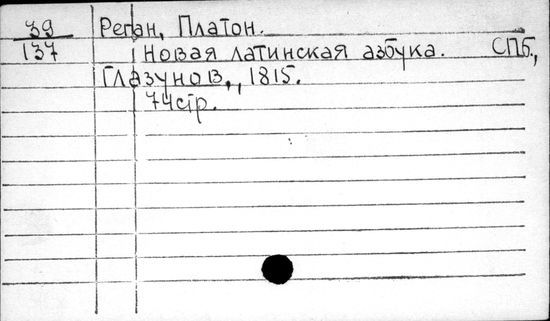 39 Реган, Платон.
137 Новая латинская азбука. СПб.,
Глазунов,, 1815.
74стр.